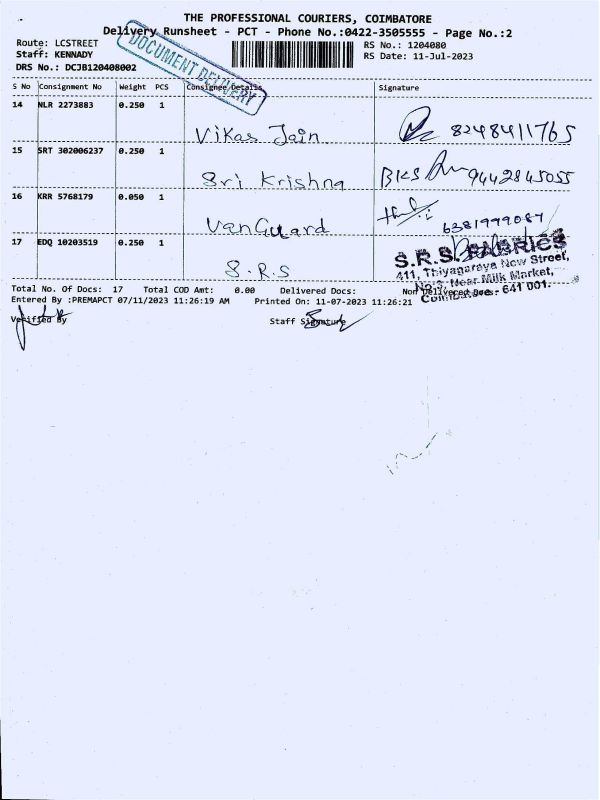 THE PROFESSIONAL COURIERS, COIMBATORE
Delivery Runsheet - PCT - Phone No.:0422-3505555 - Page No.:2
Route: LCSTREET
RS No.: 1204080
Staff: KENNADY
RS Date: 11-Jul-2023
DRS No.: DCJB120408002
DOCUMENT DELIVERY
S No Consignment No Weight PCS Consignee Details Signature
14 NLR 2273883 0.250 1
Vikas Jain 8248411765
15 SRT 302006237 0.250 1
Sri Krishna BKS 9442845055
16 KRR 5768179 0.050 1
VanGuard 6381999087
17 EDQ 10203519 0.250 1
S.R.S
S.R.S. FABRICS
411, Thiyagaraya New Street,
No:3, Near Milk Market,
Coimbatore - 641 001.
Total No. Of Docs: 17 Total COD Amt: 0.00 Delivered Docs: Non Delivered Docs:
Entered By :PREMAPCT 07/11/2023 11:26:19 AM Printed On: 11-07-2023 11:26:21
Verified By Staff Signature